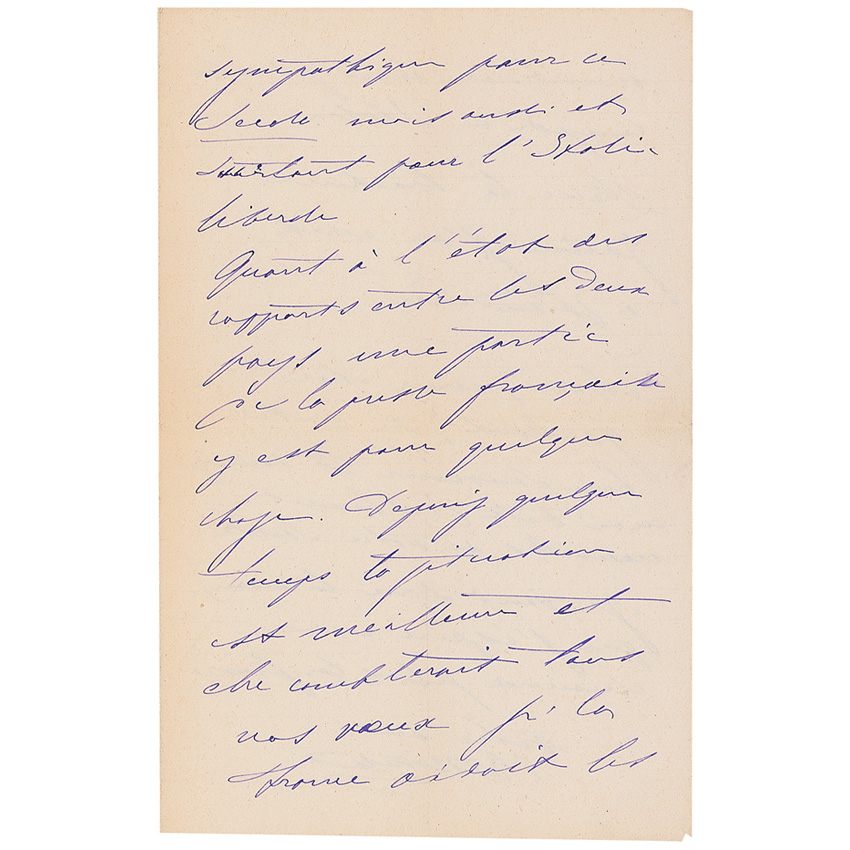 sympathique pour ce
Secolo mais aussi et
surtout pour l'Italie
liberale
Quant à l'état des
rapports entre les deux
pays une partie
de la presse française
y est pour quelque
chose. Depuis quelque
temps la situation
est meilleure et
elle comblerait tous
nos vœux si la
France aidait les